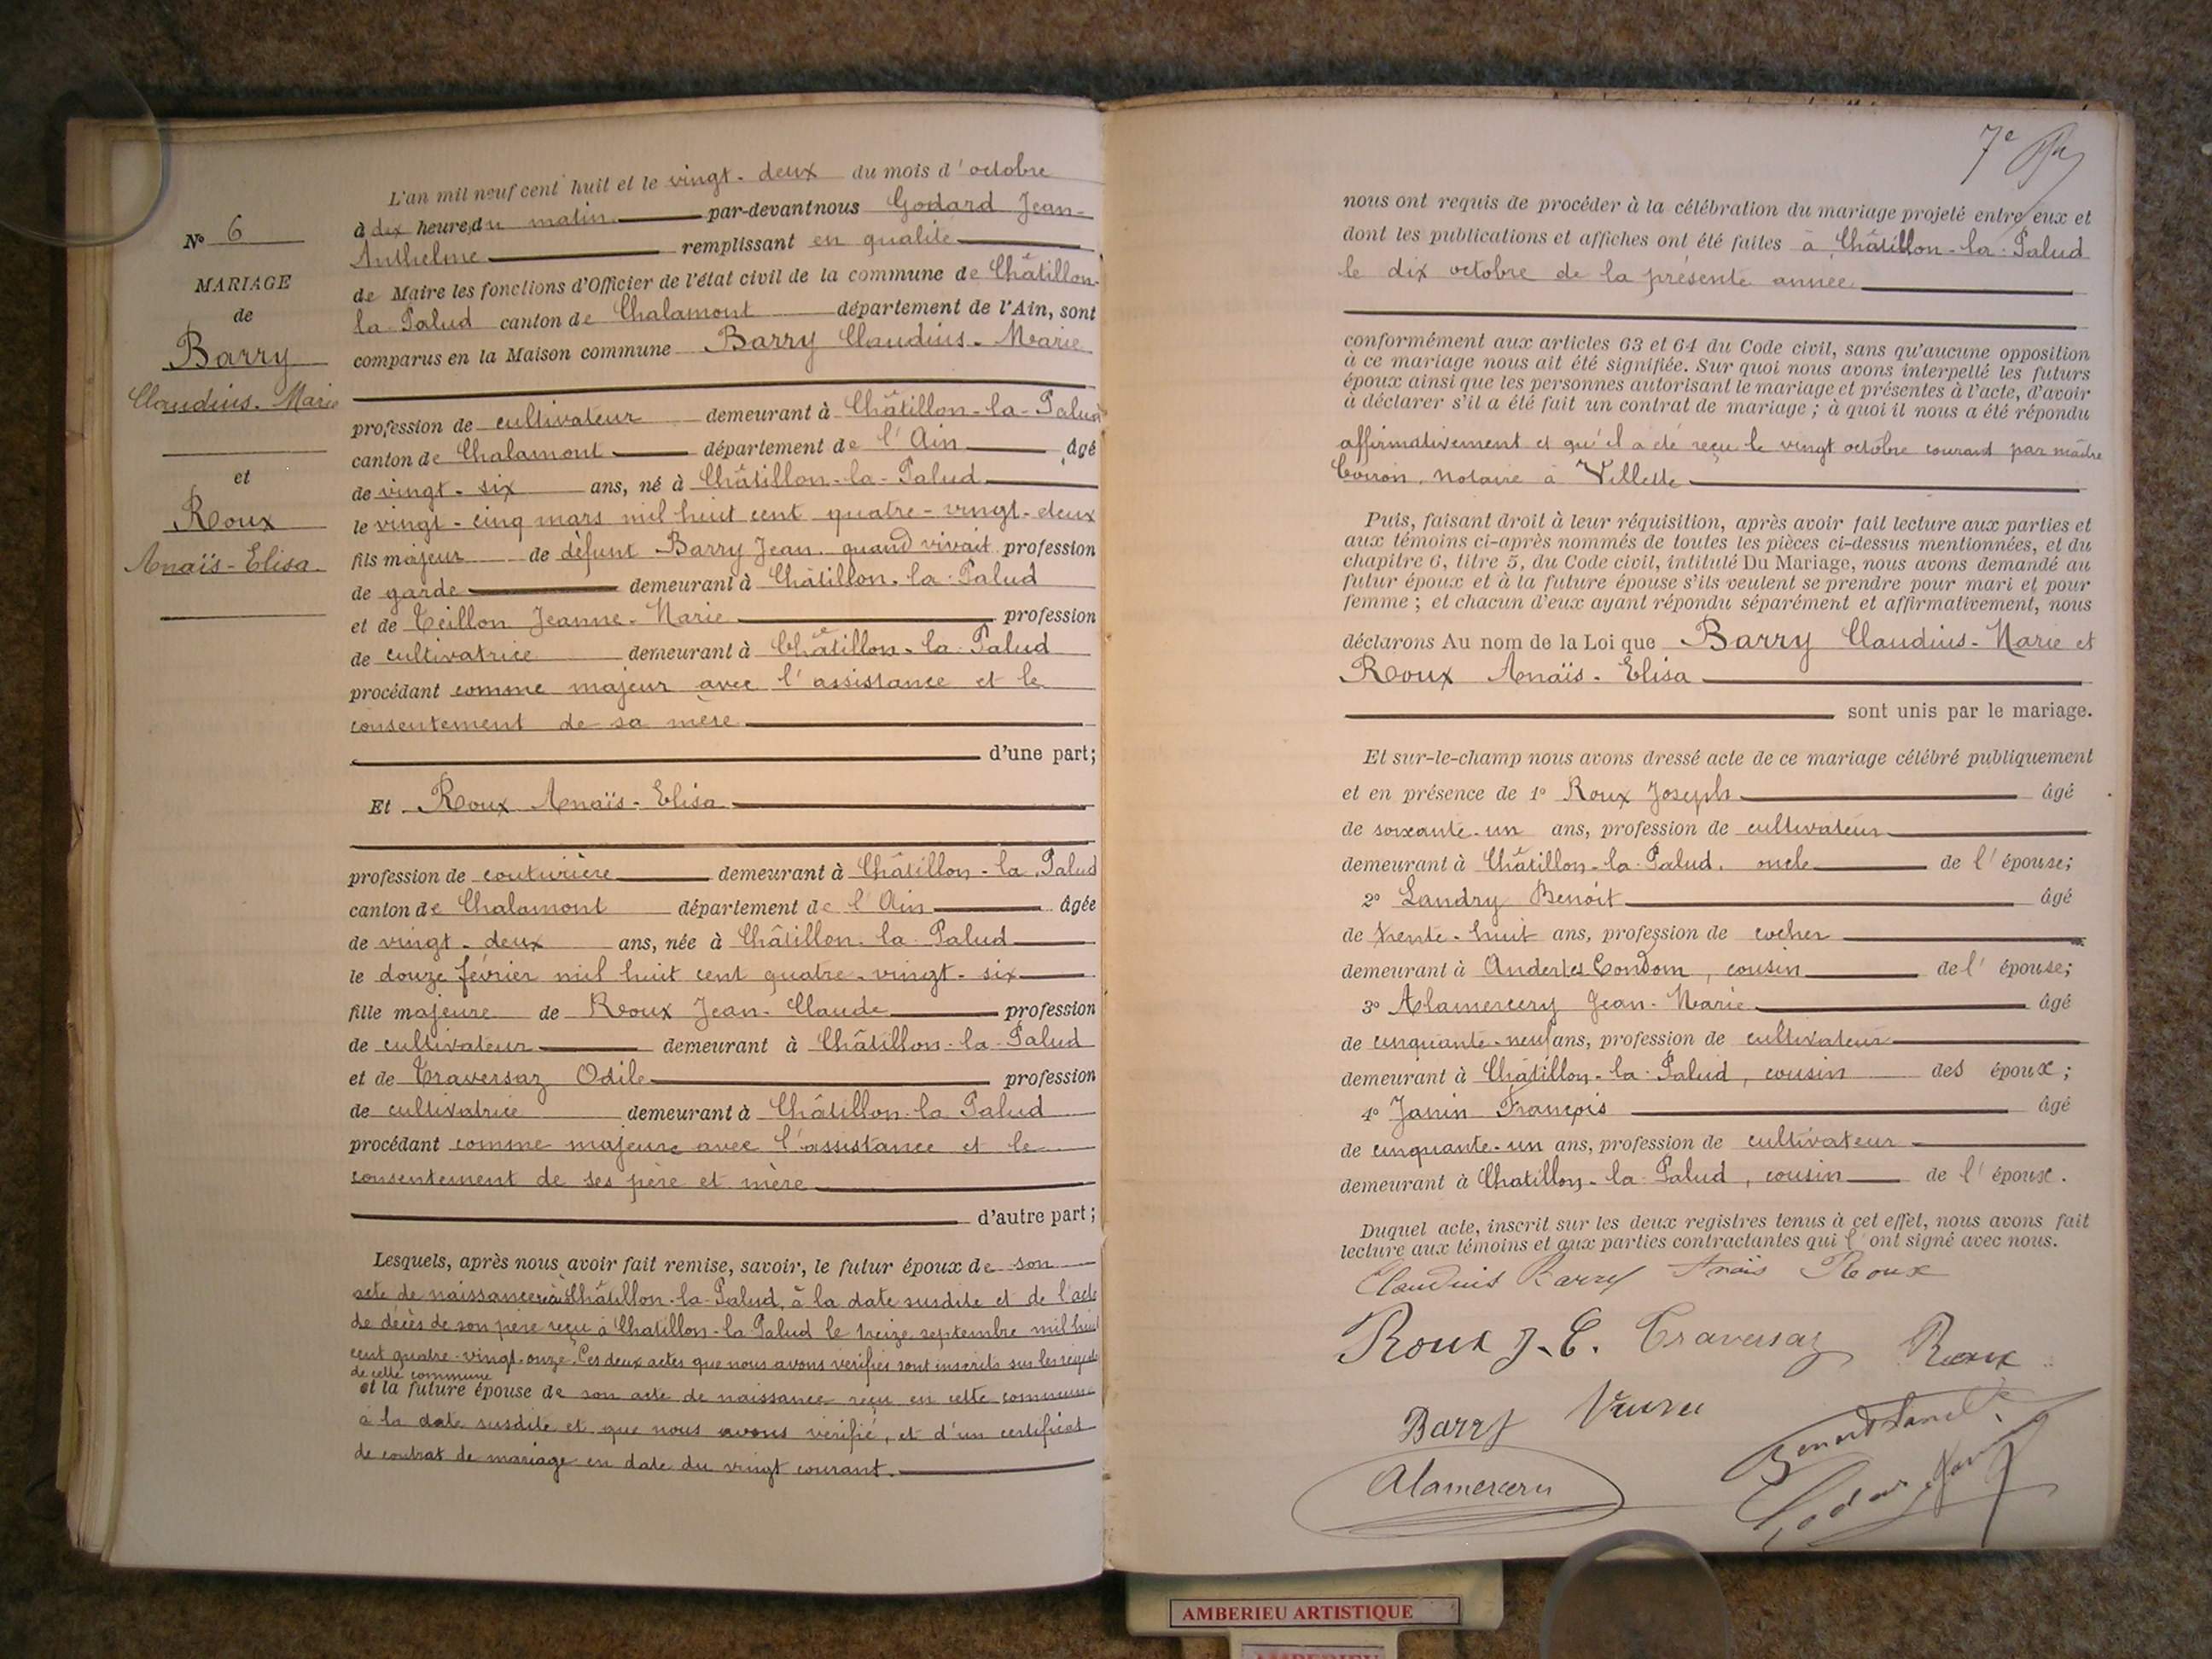 L'an mil neuf cent huit et le vingt-deux du mois d'octobre
à dix heure du matin par-devant nous Godard Jean-
Anthelme remplissant en qualité
de Maire les fonctions d'Officier de l'état civil de la commune de Châtillon-
la-Palud canton de Chalamont département de l'Ain, sont
comparus en la Maison commune Barry Claudius-Marie
N° 6
MARIAGE
de
Barry
Claudius-Marie
et
Roux
Anaïs-Elisa
profession de cultivateur demeurant à Châtillon-la-Palud
canton de Chalamont département de l'Ain âgé
de vingt-six ans, né à Châtillon-la-Palud
le vingt-cinq mars mil huit cent quatre-vingt-deux
fils majeur de défunt Barry Jean quand vivait profession
de garde demeurant à Châtillon-la-Palud
et de Teillon Jeanne-Marie profession
de cultivatrice demeurant à Châtillon-la-Palud
procédant comme majeur avec l'assistance et le
consentement de sa mère
d'une part;
Et Roux Anaïs-Elisa
profession de couturière demeurant à Châtillon-la-Palud
canton de Chalamont département de l'Ain âgée
de vingt-deux ans, née à Châtillon-la-Palud
le douze février mil huit cent quatre-vingt-six
fille majeure de Roux Jean-Claude profession
de cultivateur demeurant à Châtillon-la-Palud
et de Traversaz Odile profession
de cultivatrice demeurant à Châtillon-la-Palud
procédant comme majeure avec l'assistance et le
consentement de ses père et mère
d'autre part;
Lesquels, après nous avoir fait remise, savoir, le futur époux de son
acte de naissance à Châtillon-la-Palud, à la date susdite et de l'acte
de décès de son père reçu à Chatillon-la-Palud le treize septembre mil huit
cent quatre-vingt-onze. Ces deux actes que nous avons vérifiés sont inscrits sur les
de cette commune
et la future épouse de son acte de naissance reçu en cette commune
à la date susdite et que nous avons vérifié, et d'un certificat
de contrat de mariage en date du vingt courant.
7e
nous ont requis de procéder à la célébration du mariage projeté entre eux et
dont les publications et affiches ont été faites à Châtillon-la-Palud
le dix octobre de la présente année
conformément aux articles 63 et 64 du Code civil, sans qu'aucune opposition
à ce mariage nous ait été signifiée. Sur quoi nous avons interpellé les futurs
époux ainsi que les personnes autorisant le mariage et présentes à l'acte, d'avoir
à déclarer s'il a été fait un contrat de mariage ; à quoi il nous a été répondu
affirmativement et qu'il a été reçu le vingt octobre courant par maître
Coiron, notaire à Villette
Puis, faisant droit à leur réquisition, après avoir fait lecture aux parties et
aux témoins ci-après nommés de toutes les pièces ci-dessus mentionnées, et du
chapitre 6, titre 5, du Code civil, intitulé Du Mariage, nous avons demandé au
futur époux et à la future épouse s'ils veulent se prendre pour mari et pour
femme ; et chacun d'eux ayant répondu séparément et affirmativement, nous
déclarons Au nom de la Loi que Barry Claudius-Marie et
Roux Anaïs-Elisa
sont unis par le mariage.
Et sur-le-champ nous avons dressé acte de ce mariage célébré publiquement
et en présence de 1° Roux Joseph âgé
de soixante-un ans, profession de cultivateur
demeurant à Châtillon-la-Palud, oncle de l'épouse;
2° Landry Benoit âgé
de trente-huit ans, profession de cocher
demeurant à Condom, cousin de l'épouse;
3° Alamercery Jean-Marie âgé
de cinquante-neuf ans, profession de cultivateur
demeurant à Châtillon-la-Palud, cousin des époux;
4° Janin François âgé
de cinquante-un ans, profession de cultivateur
demeurant à Chatillon-la-Palud, cousin de l'époux.
Duquel acte, inscrit sur les deux registres tenus à cet effet, nous avons fait
lecture aux témoins et aux parties contractantes qui l'ont signé avec nous.
Claudius Barry Anais Roux
Roux J.C. Traversaz Roux
Barry Veuve
Alamercery
AMBERIEU ARTISTIQUE
AMBERIEU